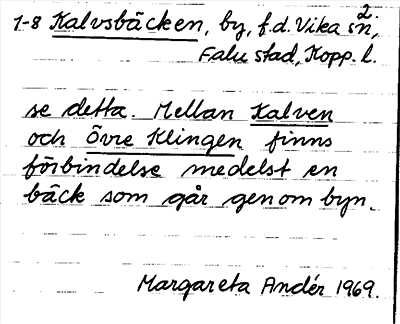 1-8 Kalvsbäcken, by, f.d. Vika sn,
2.
Falu stad, Kopp. l.
se detta. Mellan Kalven
och Övre Klingen finns
förbindelse medelst en
bäck som går genom byn.
Margareta Andér 1969.